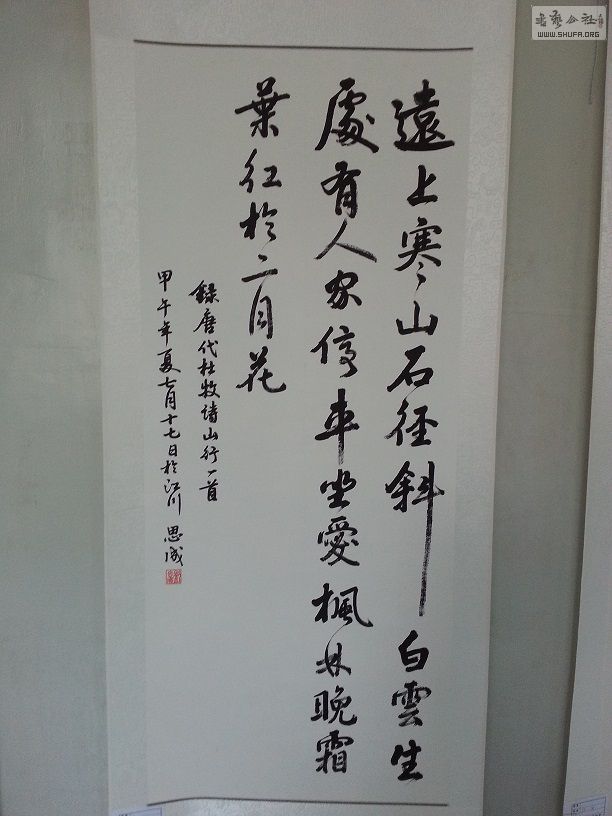 遠上寒山石径斜白雲生
處有人家停車坐愛楓林晚霜
葉红於二月花
錄唐代杜牧诗山行一首
甲午年夏七月十七日於江川 思成
书艺公社
WWW.SHUFA.ORG